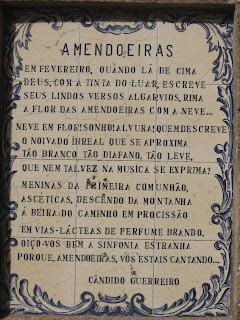 AMENDOEIRAS
EM FEVEREIRO, QUANDO LÁ DE CIMA
DEUS, COM A TINTA DO LUAR, ESCREVE
SEUS LINDOS VERSOS ALGARVIOS, RIMA
A FLOR DAS AMENDOEIRAS COM A NEVE...
NEVE EM FLOR! SONHO! ALVURA! QUEM DESCREVE
O NOIVADO IRREAL QUE SE APROXIMA
TÃO BRANCO, TÃO DIAFANO, TÃO LEVE,
QUE NEM TALVEZ NA MUSICA SE EXPRIMA?
MENINAS DA PRIMEIRA COMUNHÃO,
ASCETICAS, DESCENDO DA MONTANHA
Á BEIRA DO CAMINHO EM PROCISSÃO
EM VIAS-LÁCTEAS DE PERFUME BRANDO,
OIÇO-VOS BEM A SINFONIA ESTRANHA
PORQUE, AMENDOEIRAS, VÓS ESTAIS CANTANDO...
CÂNDIDO GUERREIRO